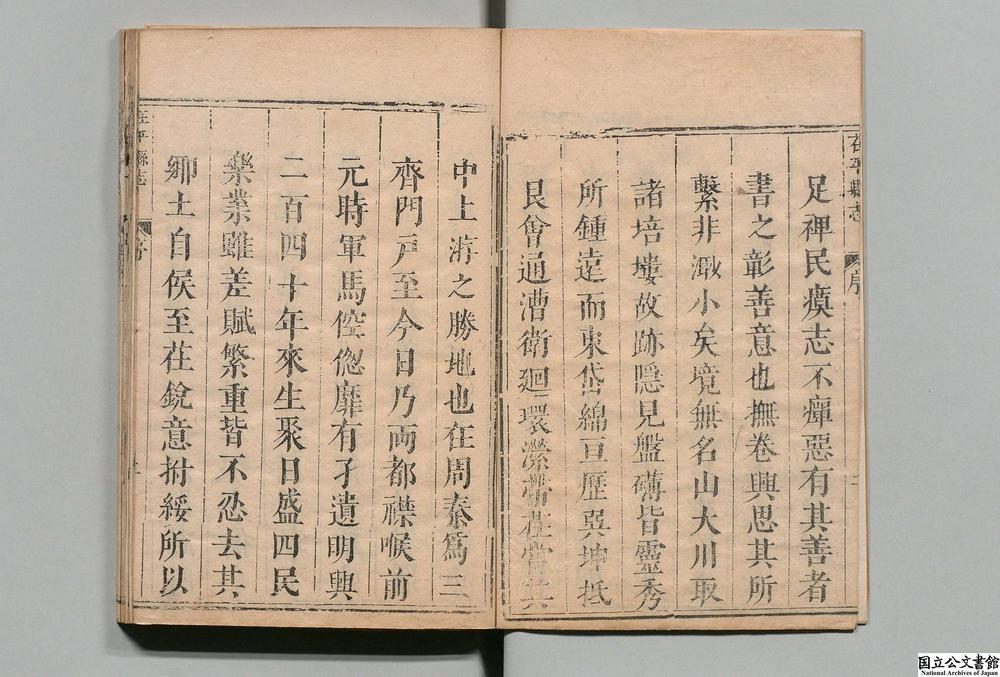 茌平縣志 序
足裨民瘼志不癉惡有其善者
書之彰善意也撫卷興思其所
繫非渺小矣境無名山大川取
諸培塿故跡隱見盤礴皆靈秀
所鍾遠而東岱綿亘歷巽坤抵
艮會通漕衛迴環瀠
中上游之勝地也在周秦為三
齊門戶至今日乃兩都襟喉前
元時軍馬倥傯靡有孑遺明興
二百四十年來生聚日盛四民
樂業雖差賦繁重皆不忍去其
鄉土自候至茌銳意拊綏所以
茌平縣志 序
国立公文書館
National Archives of Japan